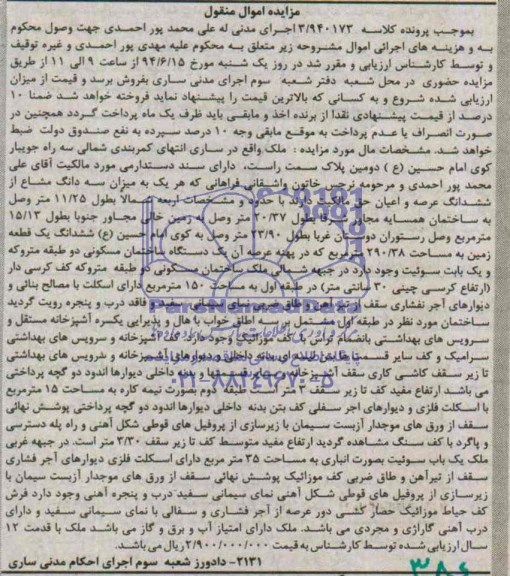 مزایده اموال منقول
بموجب پرونده کلاسه ۳/۹۴۰۱۷۳ اجرای مدنی له علی محمد پور احمدی جهت وصول محکوم
به و هزینه های اجرائی اموال مشروحه زیر متعلق به محکوم علیه مهدی پور احمدی و غیره توقیف
و توسط کارشناس ارزیابی و مقرر شد در روز یک شنبه مورخ ۹۴/۶/۱۵ از ساعت ۹ الی ۱۱ از طریق
مزایده حضوری در محل شعبه دفتر شعبه سوم اجرای مدنی ساری بفروش برسد و قیمت از میزان
ارزیابی شده شروع و به کسانی که بالاترین قیمت را پیشنهاد نماید فروخته خواهد شد ضمنا ۱۰
درصد از قیمت پیشنهادی نقدا از برنده اخذ و مابقی باید ظرف یک ماه پرداخت گردد همچنین در
صورت انصراف یا عدم پرداخت به موقع مابقی وجه ۱۰ درصد سپرده به نفع صندوق دولت ضبط
خواهد شد. مشخصات مال مورد مزایده : ملک واقع در ساری انتهای کمربندی شمالی سه راه جویبار
کوی امام حسین (ع) دومین پلاک سمت راست. دارای سند دستدارمی مورد مالکیت آقای علی
محمد پور احمدی و مرحومه نرجس خاتون شلیقانی فراهانی که هر یک به میزان سه دانگ مشاع از
ششدانگ عرصه و اعیان حق مالکیت دارند با حدود و مشخصات اربعه شمالا بطول ۱۱/۲۵ متر وصل
به ساختمان همسایه مجاور شرقا بطول ۲۰/۳۷ متر وصل به زمین خالی مجاور جنوبا بطول ۱۵/۱۳
مترمربع وصل رستوران دوستان غربا بطول ۲۳/۹۰ متر وصل به کوی امام حسین (ع) ششدانگ یک قطعه
زمین به مساحت ۲۹۰/۳۸ مترمربع که در پهنه عرصه آن یک دستگاه ساختمان مسکونی دو طبقه متروکه
و یک بابت سوئیت وجود دارد در جبهه شمالی ملک ساختمان مسکونی دو طبقه متروکه کف کرسی دار
(ارتفاع کرسی چینی ۳۰ سانتی متر) در طبقه اول به مساحت ۱۵۰ مترمربع دارای اسکلت با مصالح بنائی و
دیوارهای آجر نفشاری سقف از تیر آهن و طاق ضربی نمای سیمانی سفید و فاقد درب و پنجره رویت گردید
ساختمان مورد نظر در طبقه اول مشتمل بر سه اطاق خواب با هال و پذیرایی یکسره آشپزخانه مستقل و
سرویس های بهداشتی بانضمام تراس با کف موزائیک وجود دارد کف آشپزخانه و سرویس های بهداشتی
سرامیک و کف سایر قسمتها بدنه داخلی و دیوارهای آشپزخانه و سرویس های بهداشتی
تا زیر سقف کاشی کاری سقف آشپزخانه و سایر قسمتها و بدنه داخلی دیوارها اندود دو گچه پرداختی
می باشد ارتفاع مفید کف تا زیر سقف ۳ متر است طبقه دوم بصورت نیمه کاره به مساحت ۱۵ مترمربع
با اسکلت فلزی و دیوارهای اجر سفلی کف بتن بدنه داخلی دیوارها اندود دو گچه پرداختی پوشش نهائی
سقف از ورق های موجدار آزبست سیمان با زیرسازی از پروفیل های قوطی شکل آهنی و راه پله دسترسی
و پاگرد با کف سنگ مشاهده گردید ارتفاع مفید متوسط کف تا زیر سقف ۳/۳۰ متر است. در جبهه غربی
ملک یک باب سوئیت بصورت انباری به مساحت ۳۵ متر مربع دارای اسکلت فلزی دیوارهای آجر فشاری
سقف از تیرآهن و طاق ضربی کف موزائیک پوشش نهائی سقف از ورق های موجدار آزبست سیمان با
زیرسازی از پروفیل های قوطی شکل آهنی نمای سیمانی سفید درب و پنجره آهنی وجود دارد فرش
کف حیاط موزائیک حصار کشی دور عرصه از آجر فشاری و سفالی با نمای سیمانی سفید و دارای
درب آهنی گاراژی و مجردی می باشد. ملک دارای امتیاز آب و برق و گاز می باشد ملک با قدمت ۱۲
سال ارزیابی شده توسط کارشناس به قیمت ۲/۹۰۰/۰۰۰/۰۰۰ ریال می باشد.
۲۱۳۱- دادورز شعبه سوم اجرای احکام مدنی ساری
۳۸۶
ParsNamadData
۰۲۱-۸۸۳۴۹۶۷۰-۵